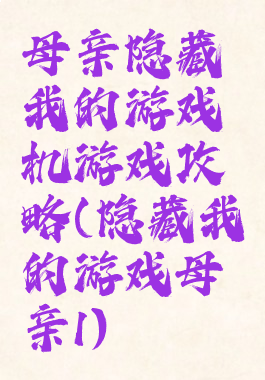 母亲隐藏
我的游戏
机游戏攻
略(隐藏我
的游戏母
亲1)